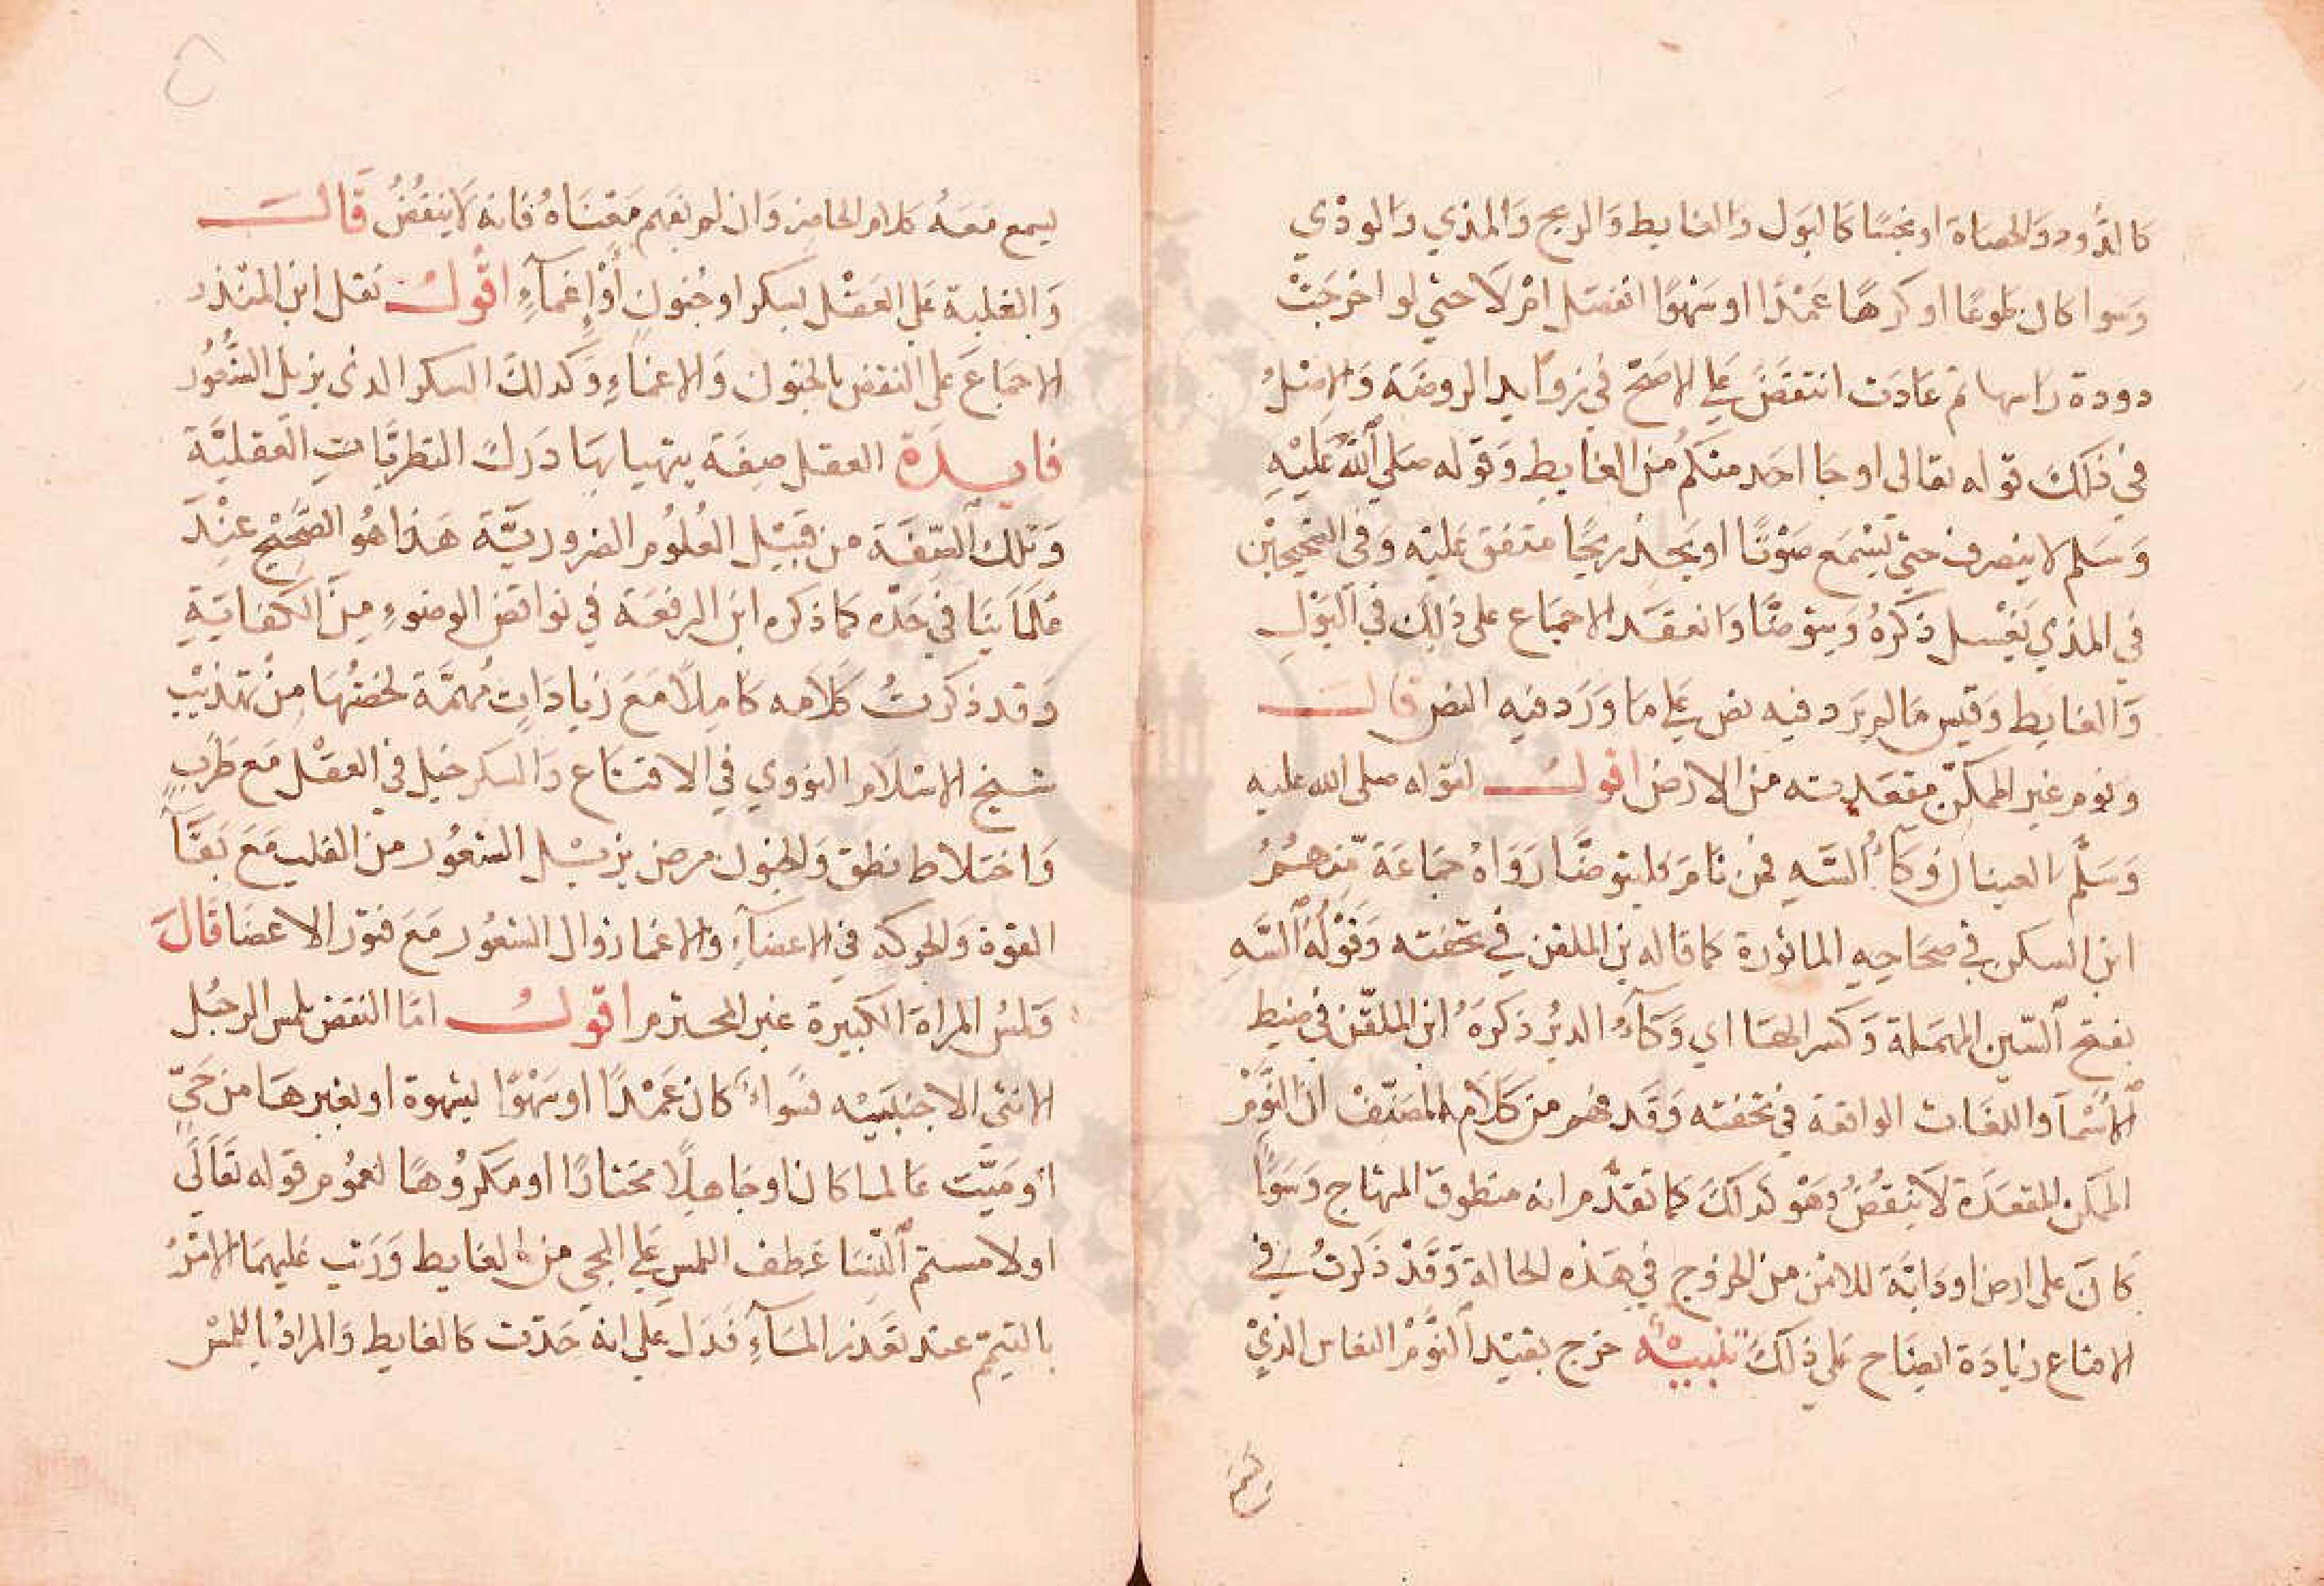 كالدُّود والحصاة او نجسًا كالبَول وَالغايط وَالريح وَالمذي وَالودْي
وَسوا كان طَوعًا او كرهًا عَمْدًا او سَهْوًا انفصَل امْ لَا حتي لو اخرجَتْ
دودة راسها ثم عَادَت انتقضَ عَلي الاصَحّ في زوَايد الروضَة وَالاصْلُ
في ذلكَ قوله تعالى او جا احَد منكم من الغايطِ وَقوله صَلي اللَّهُ عَليْهِ
وَسَلم لا ينصرف حتي يَسْمَع صَوْتًا او يجد ريحًا متفق عَليْه وَفي الصَّحيحَيْن
في المذي يَغْسل ذكَرَهُ وَيتوضّا وَانعقَد الاجمَاع على ذلِكَ في البَوْلِ
وَالغايط وَقيس مَا لم يرَد فيه نص عَلي مَا وَرَد فيه النص قَالَ
وَنوم غير الممكّن مقعَدته من الارض اقولُ لقوله صلى الله عليه
وَسَلَّم العينان وِكَآءُ السَّهِ فمن نَامَ فليتوضّا رَوَاهُ جمَاعَة مِّنهمُ
ابن السكن في صحَاحِهِ الماثورة كما قاله بن الملقن في تحفته وَقوْلُهُ السَّهِ
بفتح السّين المهمَلة وَكسر الهَا اي وَكآءُ الدبُر ذكَرَهُ ابن الملقّن في ضبط
الاسْمآ واللغَات الواقعة في تحفته وَقَد فهم من كَلَام المصَنّفْ انَّ النَّوْمَ
الممكن المقعَدَة لَا يَنقُضُ وَهوَ كذلكَ كما تقدَّم انه منطوق المنهاج وَسَوَآ
كانَ على ارض او دَابّة للامْن من الخروج في هَذه الحالة وَقَدْ ذَكرتُ في
الاقناع زيادَة ايضَاح عَلي ذلكَ تنبيْهٌ خرج بقيْد النَّوْمُ النعاس الذيْ
يسمع مَعَهُ كلام الحاضِر وَان لم يفهم مَعْناهُ فانه لَا يَنقُضُ قَالَ
وَالغلبة عَلي العَقْل بسكر او جُنون أوْ إغمآءٍ اقولُ نقل ابن المنذر
الاجمَاعَ عَلى النقض بالجنون وَالاغمَاءِ وَكذلكَ السكر الذي يزيل الشُّعُور
فايدَة العقل صِفَة يتهيا بهَا دَرك النظريَّاتِ العَقليَّة
وَتلكَ الصِّفَة من قَبيْل العُلُوم الضروريَّة هَذا هُو الصَّحِيْح عنْدَ
عُلَمَاينَا في حَدّه كما ذكره ابن الرفعَة في نواقض الوضوءِ مِنَ الكفايَةِ
وَقد ذكرتُ كَلَامه كامِلًا مَعَ زيادَاتٍ مُهمَّة لخصْتُهَا مِنْ تهذيْبِ
شيخ الاسْلَام النووي في الاقنَاع وَالسكر خبل في العقْل مَع طَرَبٍ
وَاختلاط نطق وَالجنون مرض يزيْل الشعُور من القلب مَعَ بَقآ
القوة وَالحركة في الاعضآءِ وَالاغما زوال الشعُور مَعَ فتور الاعضَا قَالَ
وَلمسُ المراة الكبيرة غير المحرَم اقولُ امّا النقض بلمس الرجُل
الانثي الاجنبيّه فسَواءٌ كان عَمْدًا او سَهْوًا بشهوة او بغيرهَا من حَيٍّ
او مَيّت عَالما كان او جَاهِلًا مختارًا او مَكرُوهًا لعمُوم قوله تَعَالَي
او لامستم النِّسَا عَطف اللمس عَلي المجي من الغايط وَرَتب عَليهمَا الامْرَ
بالتيمّم عند تعَذر المَآءِ فَدَل عَلي انهُ حَدَث كالغايط وَالمرادُ باللمسْ
يسمع